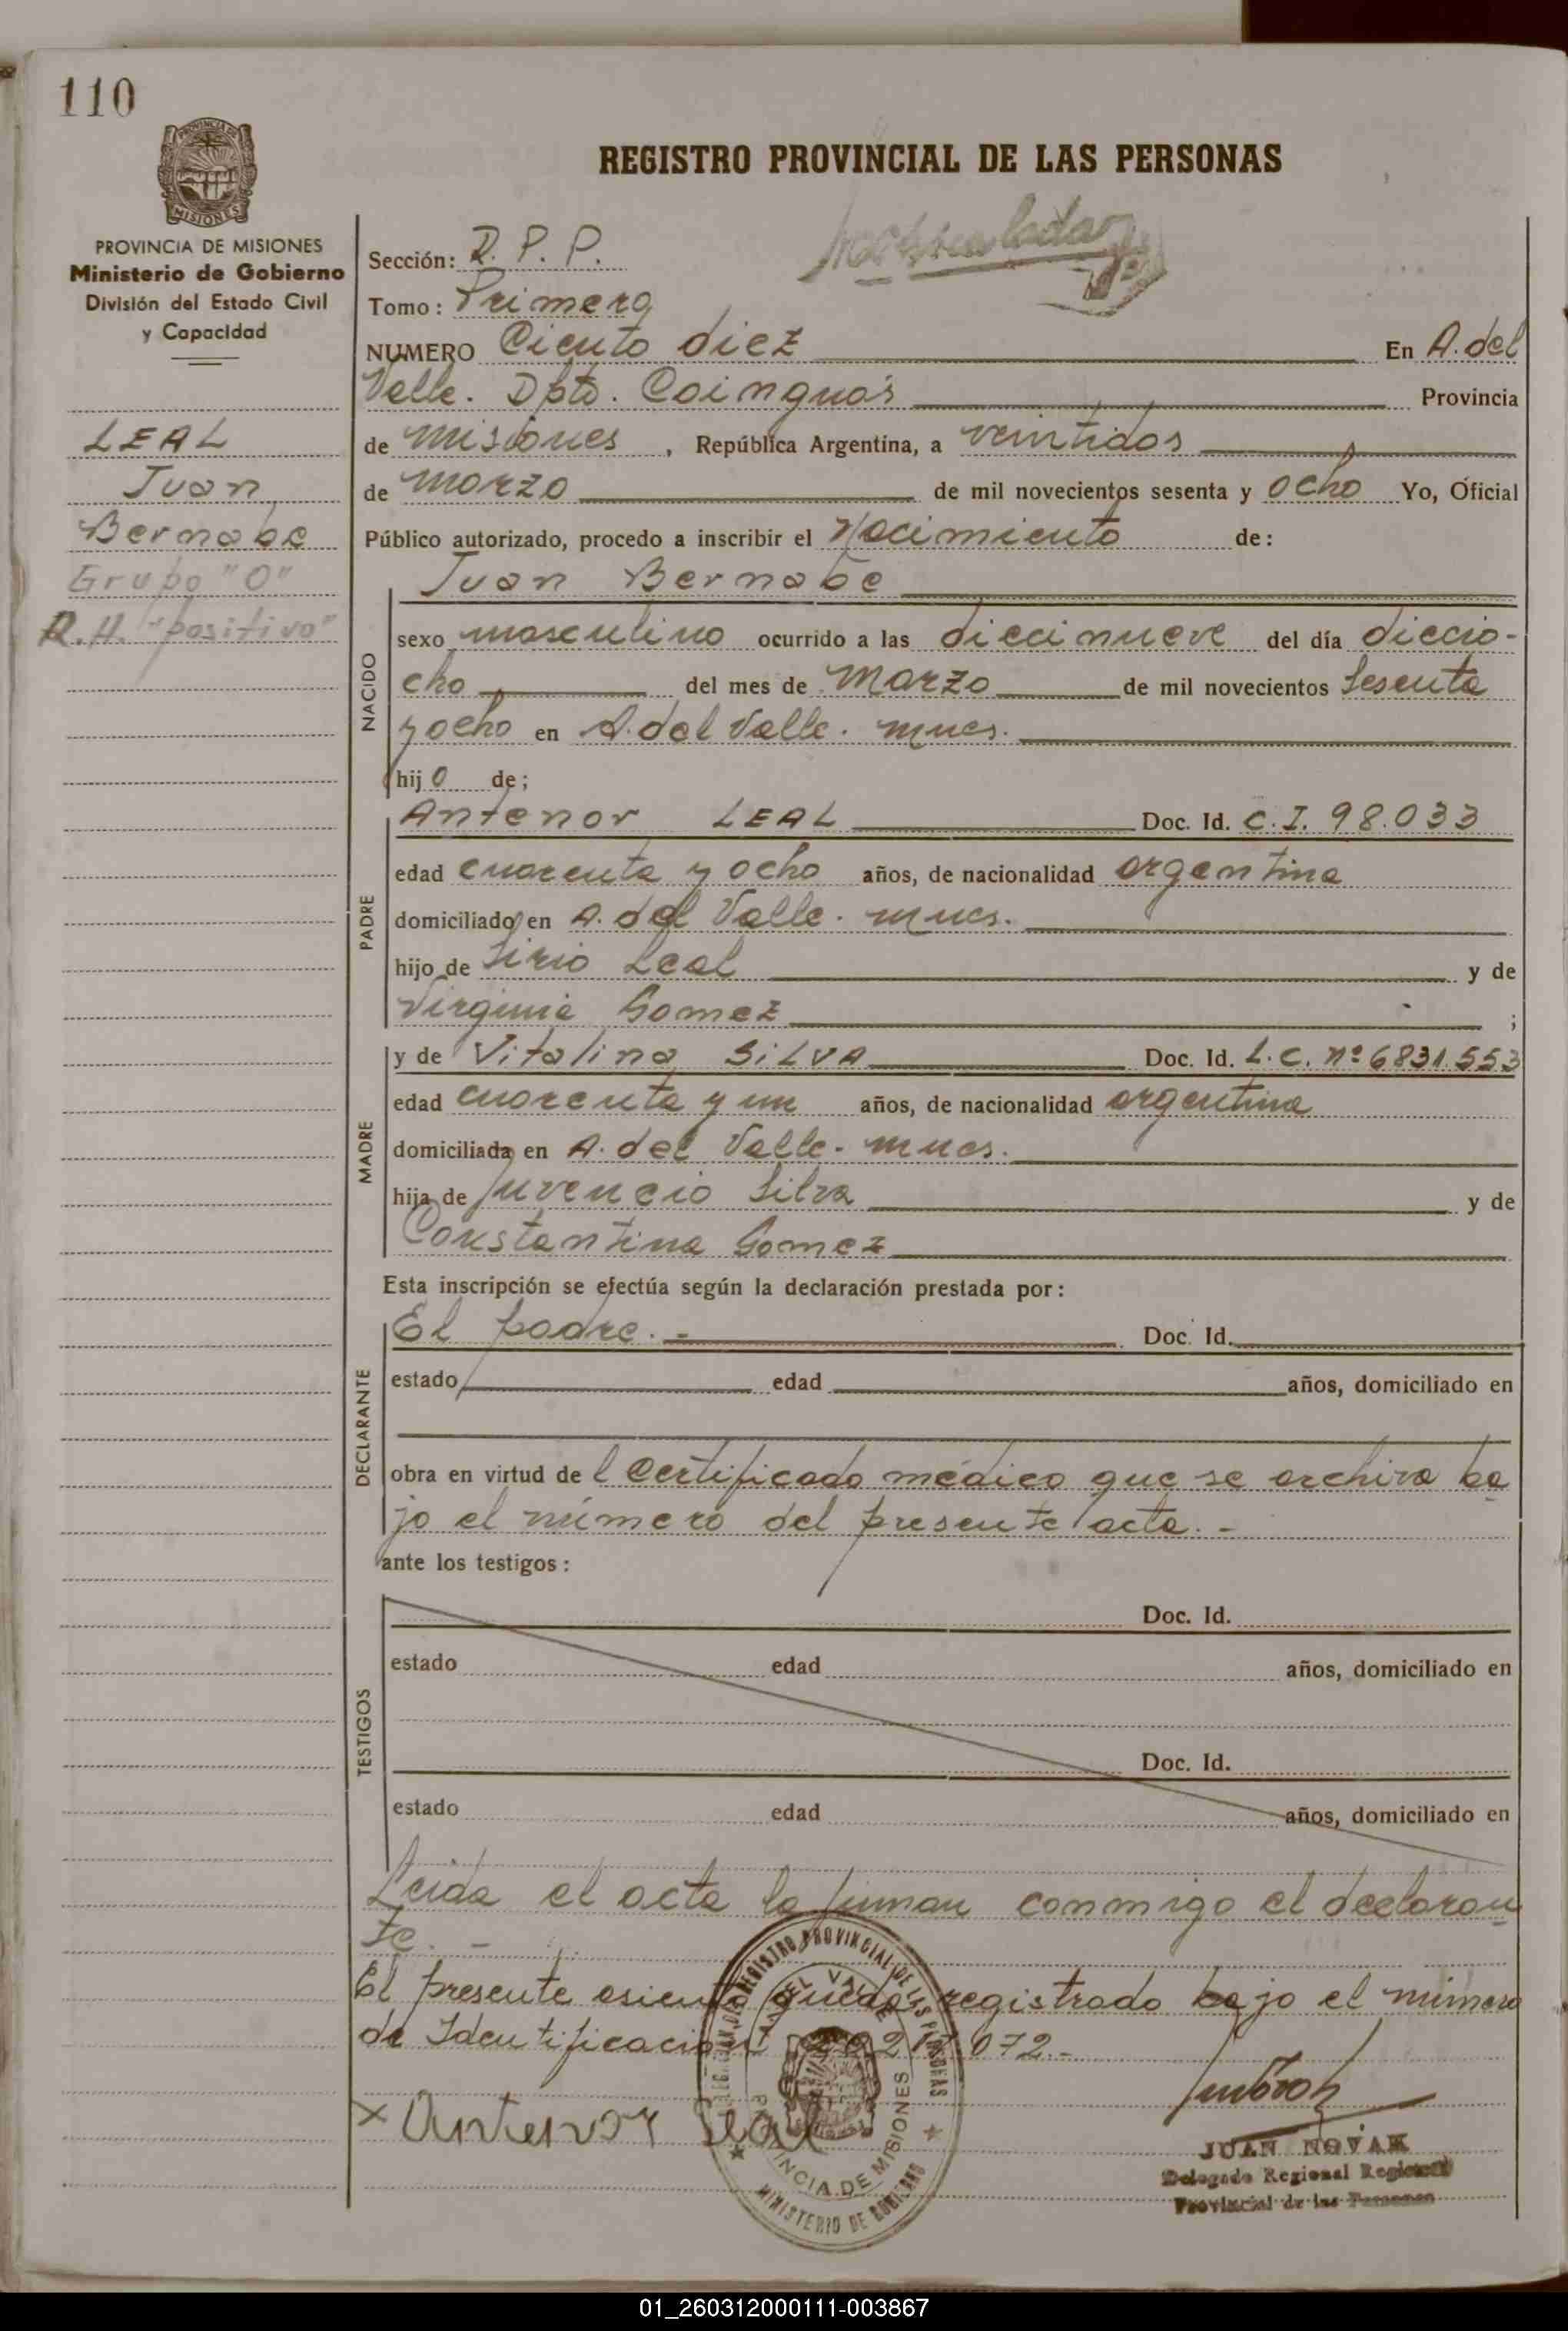 110
REGISTRO PROVINCIAL DE LAS PERSONAS
PROVINCIA DE
MISIONES
PROVINCIA DE MISIONES
Ministerio de Gobierno
División del Estado Civil
y Capacidad
LEAL
Juan
Bernabe
Grupo "O"
R.H. "positivo"
Sección: R. P. P.
Tomo: Primero
NUMERO Ciento diez En A. del
Valle. Dpto. Cainguás Provincia
de Misiones, República Argentina, a veintidos
de Marzo de mil novecientos sesenta y ocho Yo, Oficial
Público autorizado, procedo a inscribir el Nacimiento de:
Juan Bernabe
NACIDO
sexo masculino ocurrido a las diecinueve del día diecio-
cho del mes de Marzo de mil novecientos sesenta
y ocho en A. del Valle. Mnes.
hijo de;
PADRE
Antenor LEAL Doc. Id. C.I. 98.033
edad cuarenta y ocho años, de nacionalidad argentina
domiciliado en A. del Valle. Mnes.
hijo de Sirio Leal y de
Virginia Gomez ;
MADRE
y de Vitalina SILVA Doc. Id. L.C. nº 6831.553
edad cuarenta y un años, de nacionalidad argentina
domiciliada en A. del Valle. Mnes.
hija de Juvencio Silva y de
Constantina Gomez
Esta inscripción se efectúa según la declaración prestada por:
DECLARANTE
El padre. - Doc. Id.
estado edad años, domiciliado en
obra en virtud del certificado médico que se archiva ba
jo el número del presente acta. -
ante los testigos:
TESTIGOS
Doc. Id.
estado edad años, domiciliado en
Doc. Id.
estado edad años, domiciliado en
Leida el acta la firman conmigo el declaran
te. -
El presente asiento queda registrado bajo el número
de Identificación 072.-
x Antenor Leal
REGISTRO PROVINCIAL DE LAS PERSONAS
A. DEL VALLE
PROVINCIA DE MISIONES
MINISTERIO DE GOBIERNO
JUAN NOVAK
Delegado Regional Registro
Provincial de las Personas
01_260312000111-003867